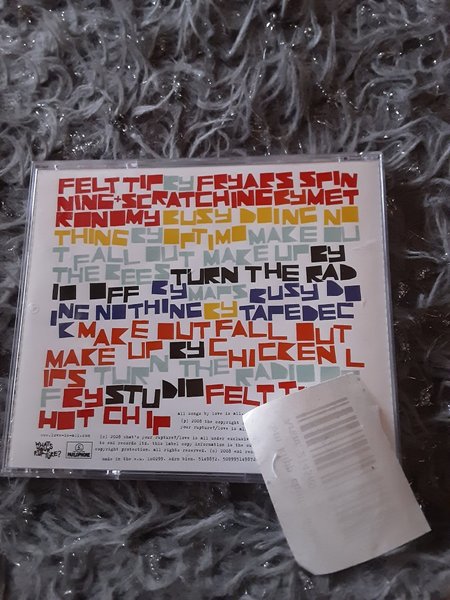 FELT TIP BY FRYARS SPIN
NING+SCRATCHING BY MET
RONOMY BUSY DOING NO
THING BY OPTIMO MAKE OU
T FALL OUT MAKE UP BY
THE BEES TURN THE RAD
IO OFF BY MAPS BUSY DO
ING NOTHING BY TAPEDEC
K MAKE OUT FALL OUT
MAKE UP BY CHICKEN L
IPS TURN THE RADIO OF
F BY STUDIO FELT
HOT CHIP
all songs by love is all
(p) 2008 the copyright
your rupture?/love is al
www.love-is-all.com
(c) 2008 what's your rupture?/love is all under exclusive
to emi records ltd. this label copy information is the su
copyright protection. all rights reserved. (c) 2008 emi rec
made in the e.u.
PARLOPHONE